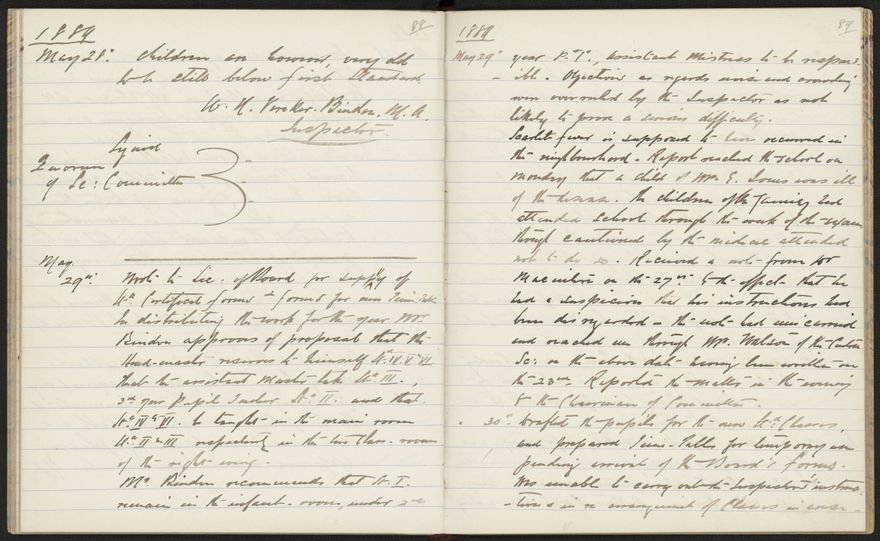 88
1884
May 28th. Children on honours, very old
to be still below first Standard.
W. H. Vereker. Bindon, M. A.
Inspector.
Signed
Quorum
of Sc: Committee
May
29th. Wrote to Sec. of Board for supply of
St. Certificate forms & forms for new Time. Table
In distributing the work for the year Mr
Bindon approves of proposal that the
Head-master reserves to himself Sts IV. V. VI.
that the assistant Master take St. III.,
3rd year Pupil Teacher St. II. and that
to be taught in the main room
Sts II & III respectively in the two Class-rooms
of the right wing.
Mr. Bindon recommends that St. I.
remain in the infant-room, under 2nd
89
1884
May 29th year P.T., assistant Mistress to be respons-
ible. Objections as regards noise and crowding
were overruled by the Inspector as not
likely to prove a serious difficulty.
Scarlet fever is supposed to have occurred in
the neighbourhood. Report reached the school on
Monday that a child of Mr E. Jones was ill
of the disease. The children of the family had
attended School through the week of the
though cautioned by the medical
not to do so. Received a note from Dr
on the 27th to the effect that he
had a suspicion that his instructions had
been disregarded - the note had miscarried
and reached me through Mr. Watson of the
Sc: on the above date having been written on
the 23rd. Reported the matter in the evening
to the Chairman of Committee.
" 30th. Drafted the pupils for the new St. Classes,
and prepared Time-Tables for temporary use
pending arrival of the Board's forms.
Was unable to carry out the Inspector's instruc-
-tions in re arrangement of Classes in